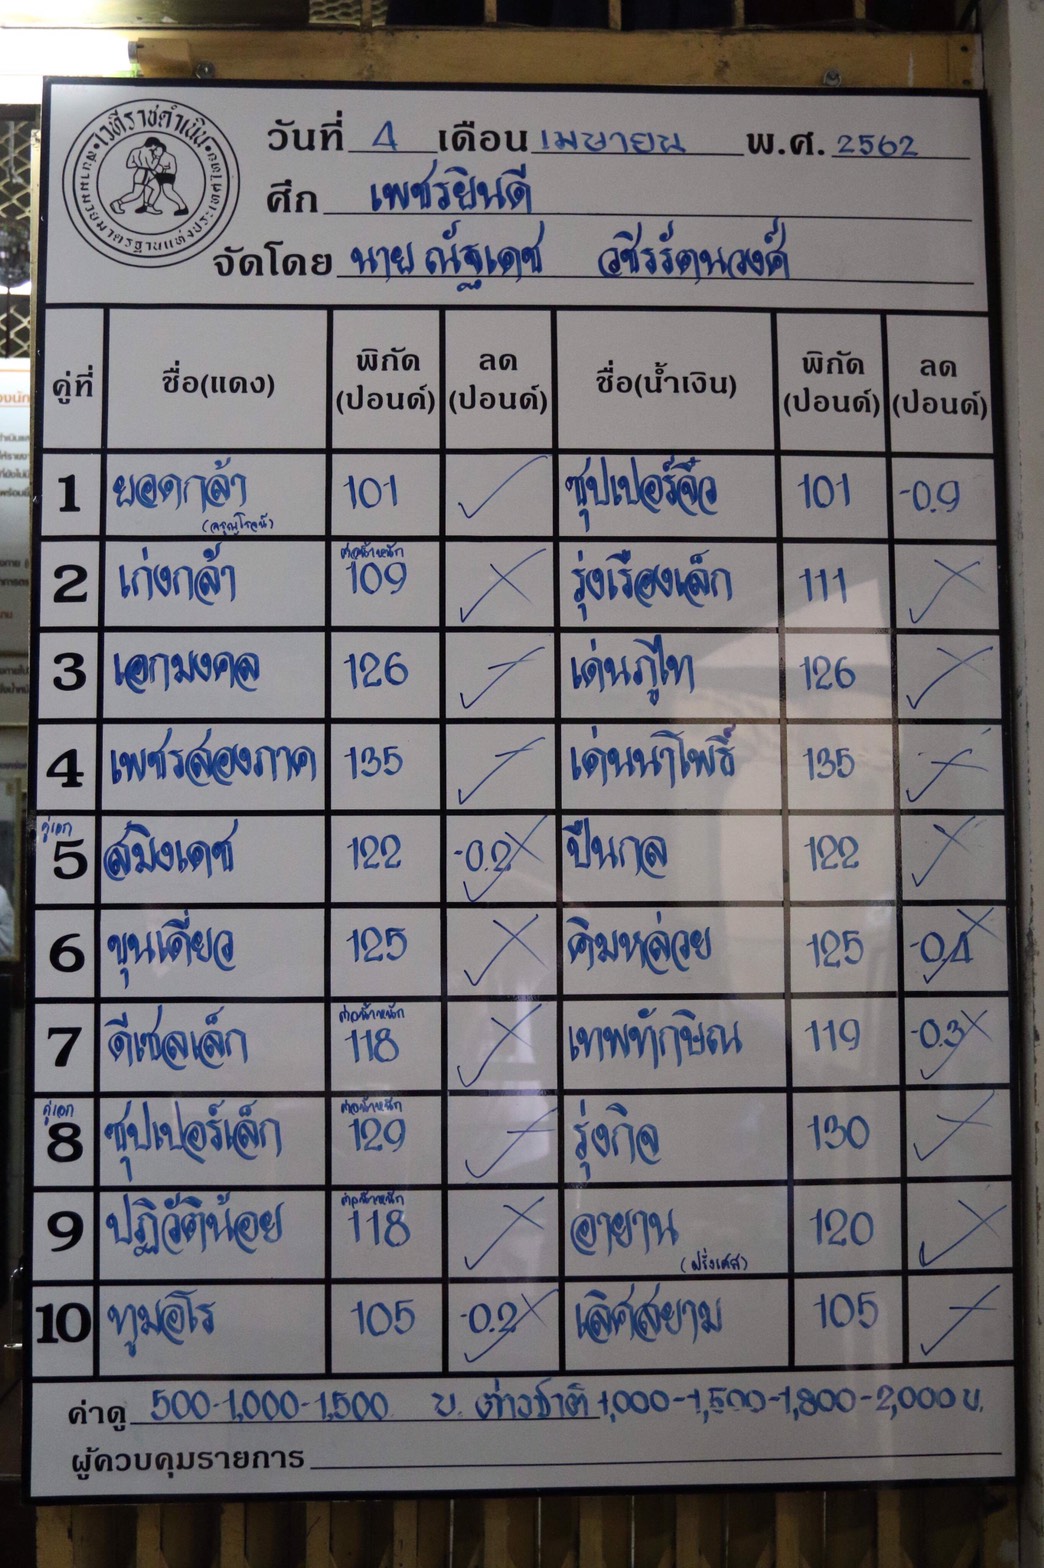 เวทีราชดำเนิน
วันที่ 4 เดือน เมษายน พ.ศ. 2562
ศึก เพชรยินดี
จัดโดย นายณัฐเดช วชิรรัตนวงศ์
คู่ที่ ชื่อ(แดง) พิกัด (ปอนด์) ลด (ปอนด์) ชื่อ(น้ำเงิน) พิกัด (ปอนด์) ลด (ปอนด์)
1 ยอดกล้า 101 ซุปเปอร์จิ๋ว 101 -0.9
2 เก่งกล้า ต่อน้ำหนัก 109 รุ่งเรืองเล็ก 111
3 เอกมงคล 126 เด่นภูไท 126
4 เพชรสองภาค 135 เด่นนาโพธิ์ 135
คู่เอก 5 สมิงเดช 122 -0.2 ปืนกล 122
6 ขุนเดี่ยว 125 คิมหล่วย 125 -0.4
7 ดีเซลเล็ก ต่อน้ำหนัก 118 เทพทักษิณ 119 -0.3
คู่เอก 8 ซุปเปอร์เล็ก ต่อน้ำหนัก 129 รุ่งกิจ 130
9 ปฏิวัติน้อย ต่อน้ำหนัก 118 อายาน (ฝรั่งเศส) 120
10 ทูมอโร 105 -0.2 เลิศสยาม 105
ค่าดู 500-1,000-1,500 บ. ต่างชาติ 1,000-1,500-1,800-2,000 บ.
ผู้ควบคุมรายการ